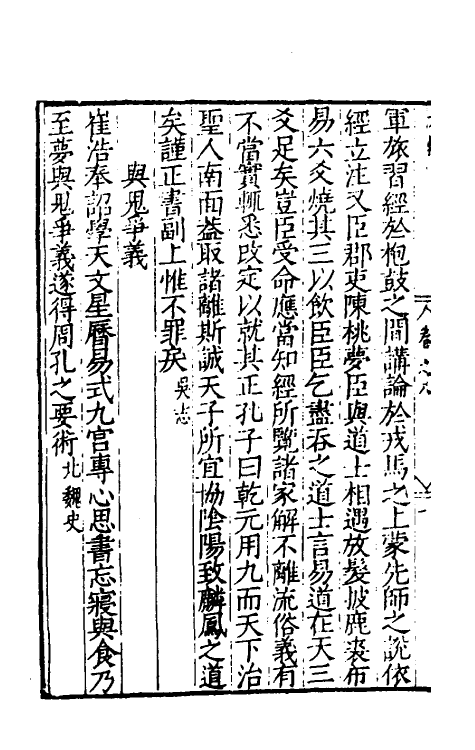 軍旅習經於枹鼓之間講論於戎馬之上蒙先師之說依
經立注又臣郡吏陳桃夢臣與道士相遇放髮披鹿裘布
易六爻燒其三以飲臣臣乞盡吞之道士言易道在天三
爻足矣豈臣受命應當知經所覽諸家解不離流俗義有
不當實輒悉改定以就其正孔子曰乾元用九而天下治
聖人南面葢取諸離斯誠天子所宜協陰陽致麟鳳之道
矣謹正書副上惟不罪矣吳志
與鬼爭義
崔浩奉詔學天文星曆易式九宫專心思書忘寢與食乃
至夢與鬼爭義遂得周孔之要術北魏史